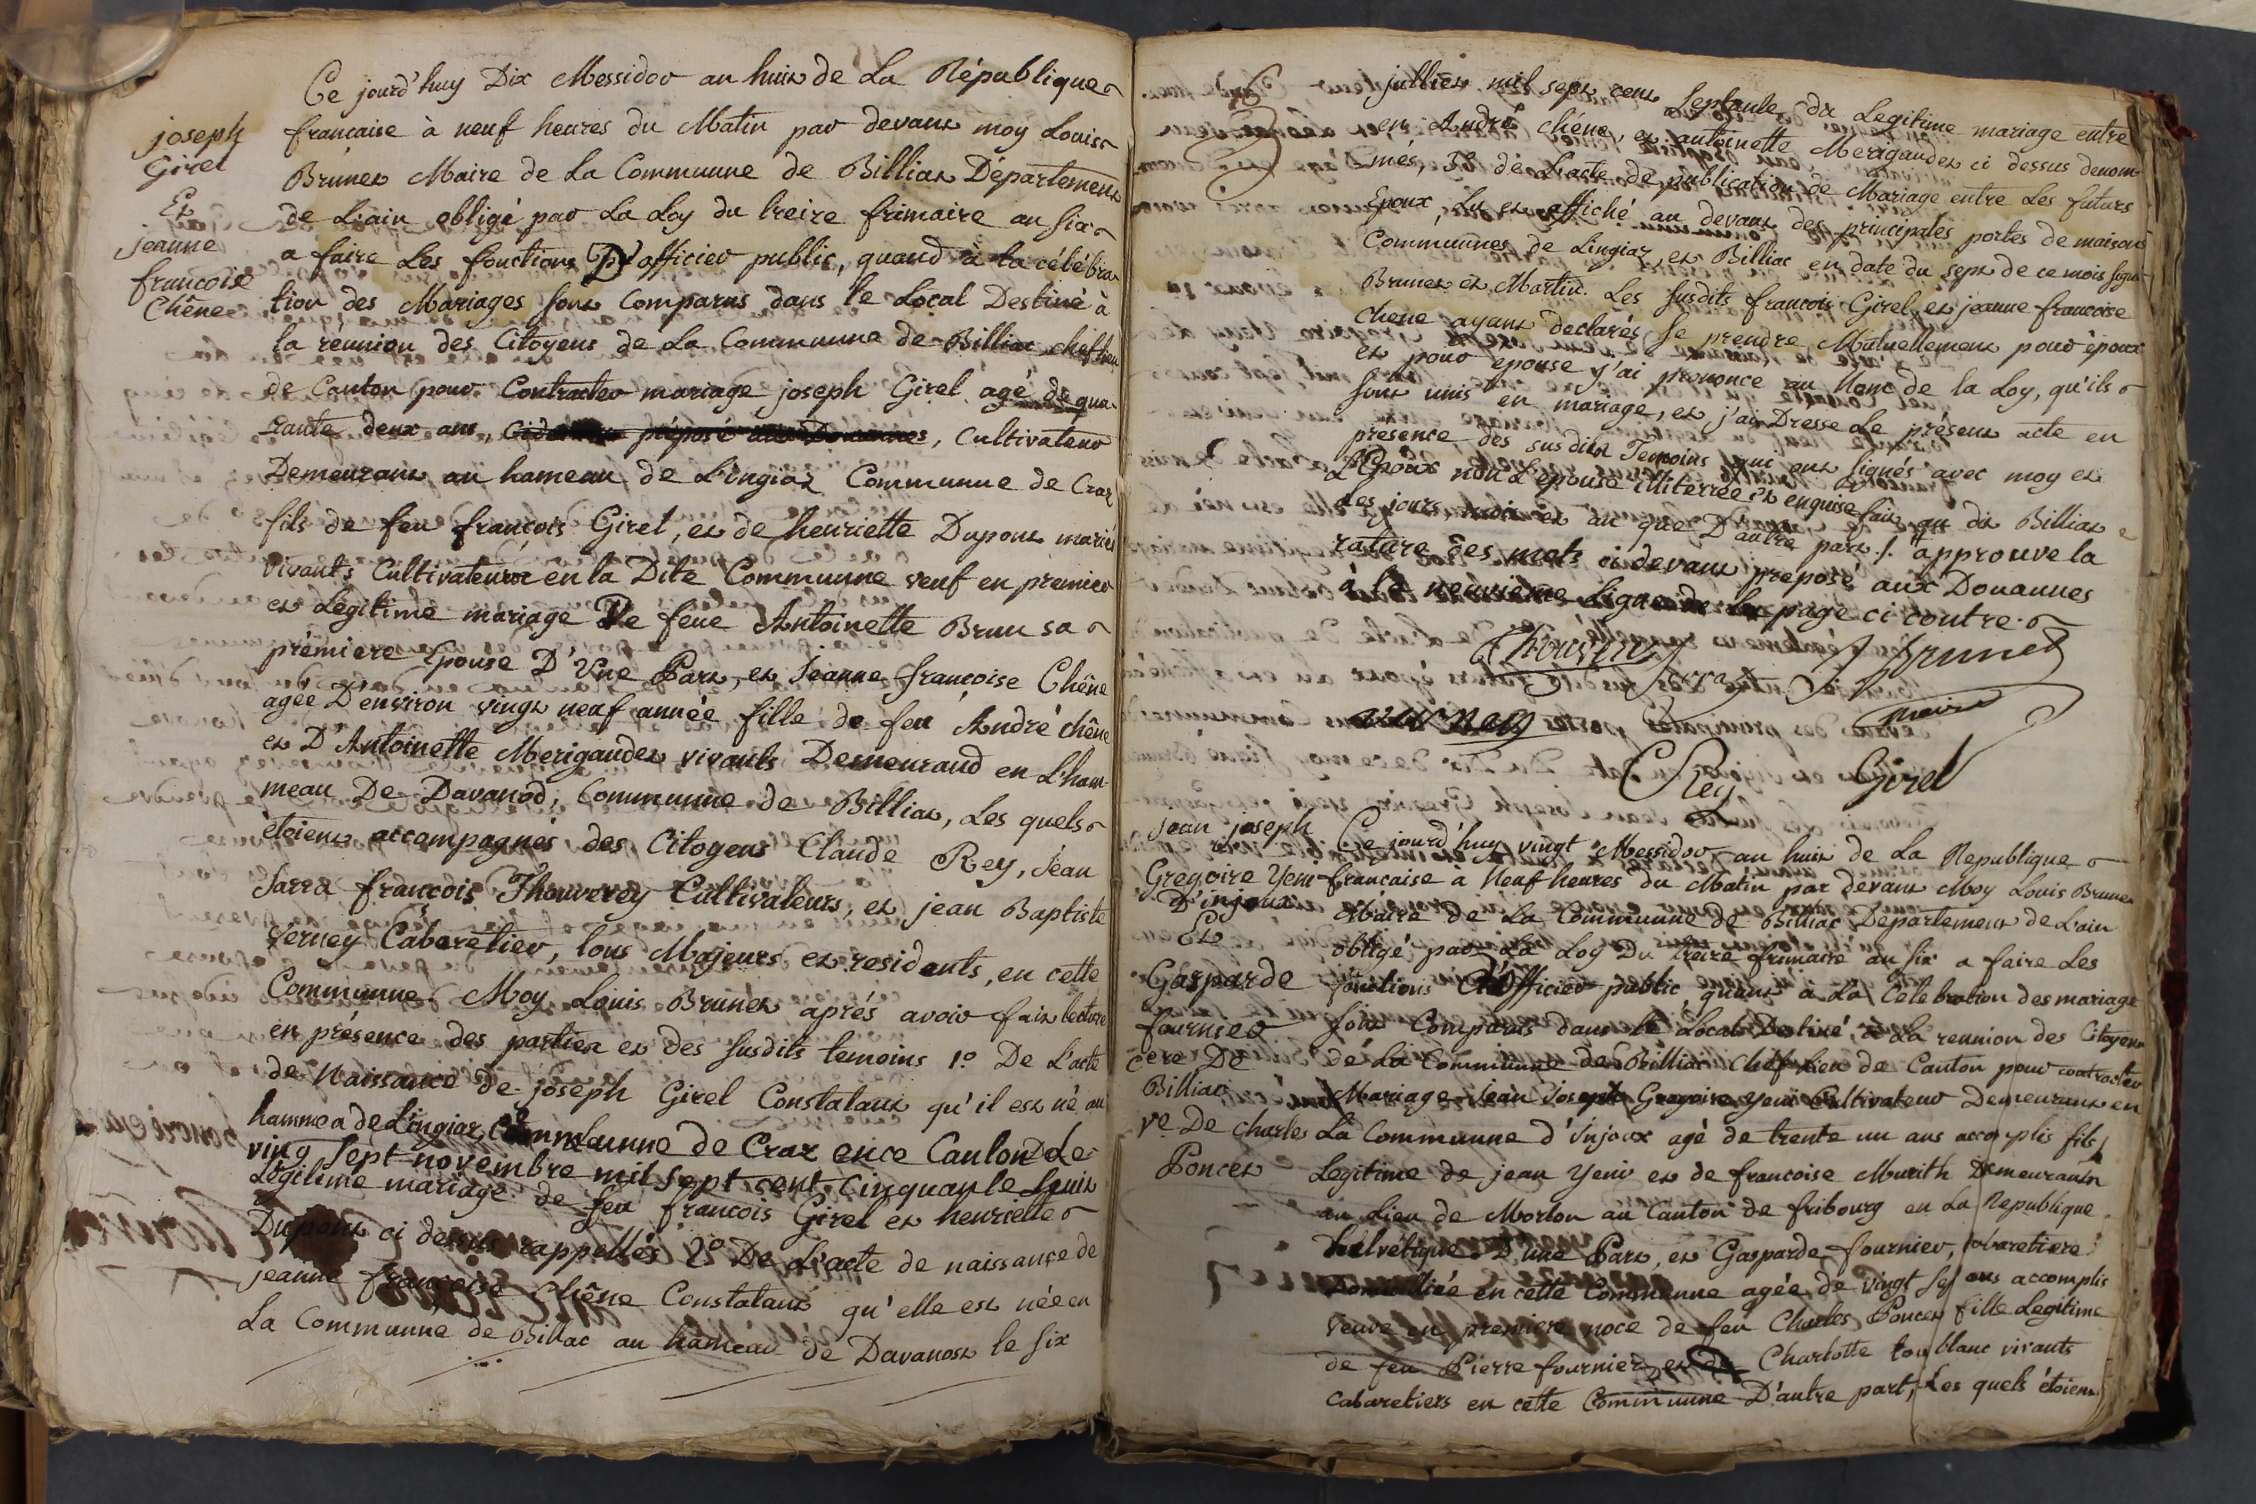 joseph
Girel
Et
jeanne
francoise
Chêne
Ce jourd'huy Dix Messidor an huit de La République
francaise à neuf heures du Matin par devant moy Louis
Brunet Maire de La Commune de Billiat Département
de L'ain obligé par La Loy du treize frimaire an six
a faire Les fonctions D'officier public, quand à la célébra
tion des Mariages sont Comparus dans le Local Destiné à
la réunion des Citoyens de La Commune de Billiat chef lieu
de Canton pour Contracter mariage joseph Girel agé de qua
rante deux ans, préposé aux Douannes, Cultivateur
Demeurant au hameau de L'ingiaz Commune de Craz
fils de feu françois Girel, et de henriette Dupont mariés
vivants Cultivateurs en la Dite Commune veuf en premier
et Légitime mariage De feue Antoinette Brun sa
première Epouse D'Une Part, et Jeanne françoise Chêne
agée D'environ vingt neuf année fille de feu André chêne
et D'Antoinette Merigaudet vivants Demeurand en L'ham
meau De Davanod, Commune de Billiat, Les quels
étoient accompagnés des Citoyens Claude Rey, Jean
Sarra françois Thouverey Cultivateurs, et jean Baptiste
Verney Cabaretier, tous Majeurs et residents, en cette
Commune. Moy Louis Brunet aprés avoir fait lecture
en présence des parties et des susdits temoins 1º. De L'acte
de Naissance de joseph Girel Constatant qu'il est né au
hammea de Lingiaz Commune de Craz en ce Canton Le
ving sept novembre mil sept cent cinquante huit De
Légitime mariage de feu francois Girel et henriette
Dupont ci dessus rappellés 2º De L'acte de naissance de
jeanne françoise Chêne Constatant qu'elle est née en
La Commune de Billiac au hameau de Davanost le six
juillet mil sept cent septante du Legitime mariage entre
en André chêne, et antoinette Merigaudet ci dessus denom
més, 3º de L'acte de publication de Mariage entre Les futurs
Epoux, Lu et affiché au devant des principales portes de maisons
Communes de Lingiaz, et Billiac en date du sept de ce mois signé
Brunet et Martin. Les susdits francois Girel, et jeanne francoise
chene ayant declarés Se prendre Mutuellement pour époux
et pour epouse j'ai prononce au Nom de la Loy, qu'ils
sont unis en mariage, et j'ai Dresse Le présent acte en
presence des susdits Temoins qui ont signés avec moy et
L'Epoux non L'épouse illiterrée et enquise fait au dit Billiat
Les jours, mois et an que D'autre part ./. approuve la
rature des mots ci devant preposé aux Douannes
à la neuvieme Ligne de la page ci contre.
Thouverey Sarra Brunet
verney maire
C Rey Girel
jean joseph
Gregoire Yeni
D'injoux
Et
Gasparde
fournier
cere De
Billiat
Ve. De charles
Poncet
Ce jourd'huy vingt Messidor an huit de La Republique
francaise a Neuf heures du Matin par devant Moy Louis Brunet
Maire de La Commune de Billiat Departement de L'ain
obligé par La Loy Du treize frimaire an six a faire Les
fonctions D'Officier public, quant a La Celebration des mariage
sont Comparus dans le Local Destiné, à La reunion des Citoyens
de La Commune de Billiat Chef Lieu de Canton pour contracter
Mariage Jean Joseph Gregoire Yeni Cultivateur Demeurant en
La Commune d'Injoux agé de trente un ans accomplis fils
Legitime de jean Yeni et de francoise Murith Demeurants
au Lieu de Morlon au Canton de fribourg en La Republique
helvétique D'une Part, et Gasparde fournier, cabaretiere
Domiciliée en cette Commune agée de vingt sept ans accomplis
veuve en premiere noce de feu Charles Poncet fille Legitime
de feu Pierre fournier et de Charlotte toublanc vivants
cabaretiers en cette Commune D'autre part, Les quels étoient